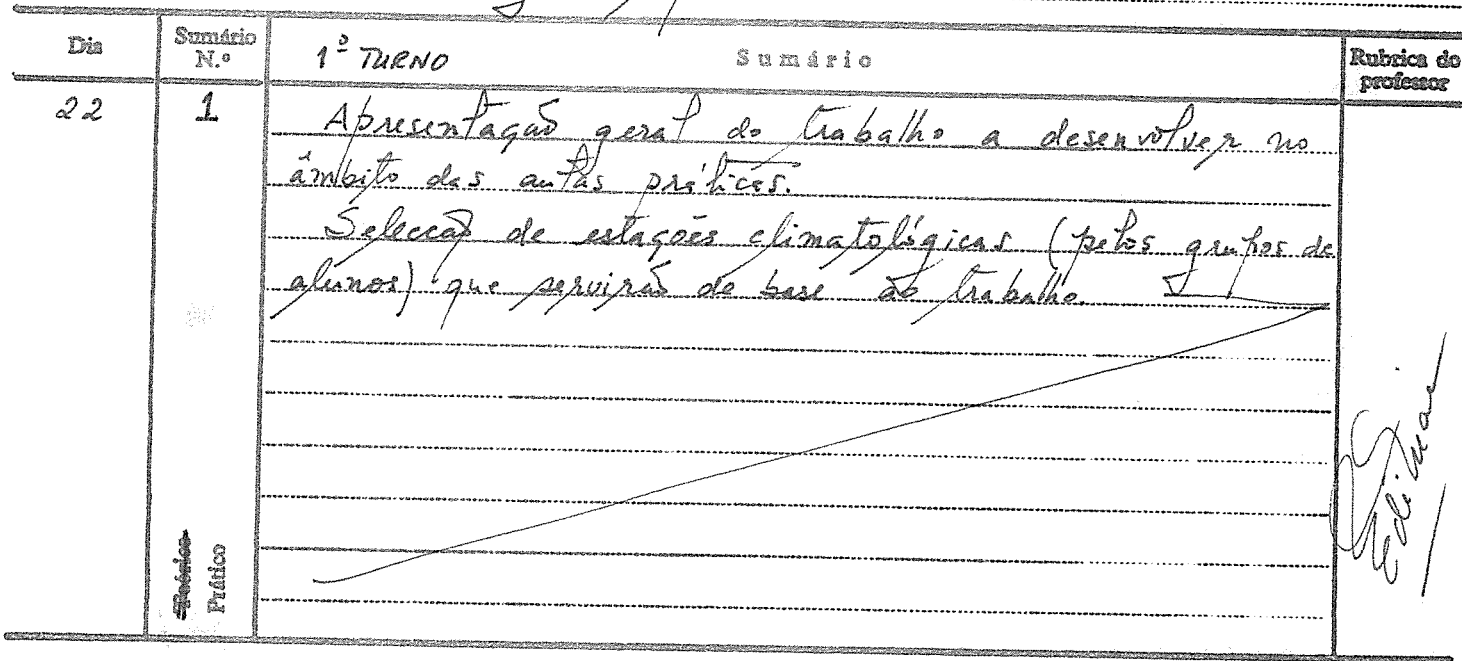 Dia Sumário N.º 1º TURNO Sumário Rubrica do professor
22 1 Apresentação geral do trabalho a desenvolver no
âmbito das aulas práticas.
Selecção de estações climatológicas (pelos grupos de
alunos) que servirão de base ao trabalho.
Teórico
Prático